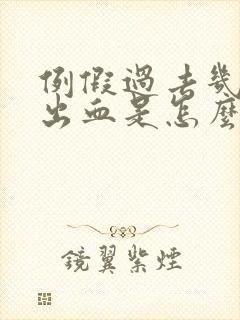 例假過去幾
出血是怎麼
鏡翼紫煙